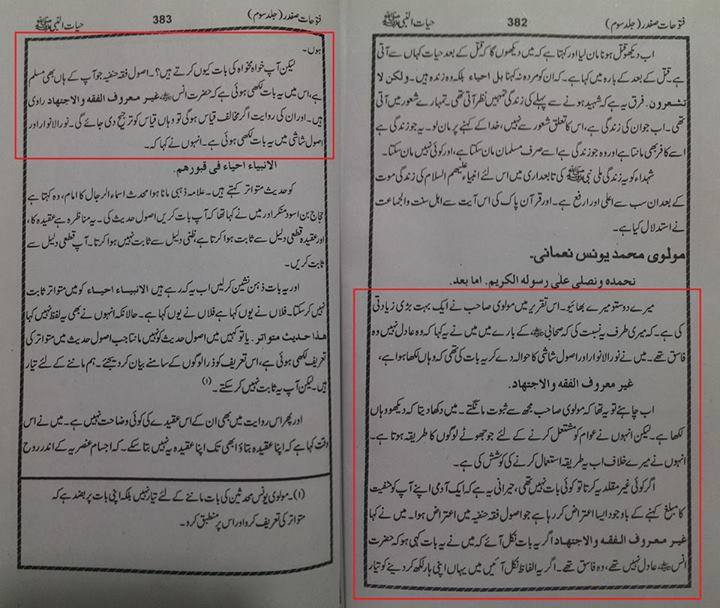 فتوحات صفدر (جلد سوم)
382
حیات النبی ﷺ
اب دیکھو قتل ہونا مان لیا اور کہتا ہے کہ میں دیکھوں گا کہ قتل کے بعد حیات کہاں سے آتی
ہے قتل کے بعد کے بارہ میں کہا ہے۔ کہ ان کو مردہ نہ کہنا بل احیاء بلکہ وہ زندہ ہیں۔ ولکن لا
تشعرون. فرق یہ ہے کہ شہید ہونے سے پہلے کی زندگی تمہیں نظر آتی تھی۔ تمہارے شعور میں آتی
تھی۔ اب جو ان کی زندگی ہے، اس کا تعلق شعور سے نہیں، خدا کے کہنے پر مان لو۔ یہ جو زندگی ہے
اسے کافر بھی مانتا ہے اور وہ جو زندگی ہے اسے صرف مسلمان مان سکتا ہے، اور کوئی نہیں مان سکتا۔
شہداء کو یہ زندگی ملی نبی ﷺ کی تابعداری میں اس لئے انبیاء علیھم السلام کی زندگی موت
کے بعد ان سب سے اعلیٰ اور ارفع ہے۔ اور قرآن پاک کی اس آیت سے اہل سنت والجماعت
نے استدلال کیا ہے۔
مولوی محمد یونس نعمانی۔
نحمده و نصلی علی رسوله الکریم. اما بعد.
میرے دوستو میرے بھائیو۔ اس تقریر میں مولوی صاحب نے ایک بہت بڑی زیادتی
کی ہے۔ کہ میری طرف یہ نسبت کی کہ صحابی ﷺ کے بارے میں میں نے یہ کہا کہ وہ عادل نہیں وہ
فاسق تھے۔ میں نے نور الانوار اور اصول شاشی کا حوالہ دے کر یہ بات کی تھی کہ وہاں لکھا ہوا ہے،
غیر معروف الفقه والاجتهاد.
اب چاہئے تو یہ تھا کہ مولوی صاحب مجھ سے ثبوت مانگتے۔ میں دکھا دیتا کہ دیکھو وہاں
لکھا ہے۔ لیکن انہوں نے عوام کو مشتعل کرنے کے لئے جو جھوٹے لوگوں کا طریقہ ہوتا ہے۔
انہوں نے میرے خلاف اب یہ طریقہ استعمال کرنے کی کوشش کی ہے۔
اگر کوئی غیر مقلد یہ کرتا تو کوئی بات نہیں تھی، حیرانی یہ ہے کہ ایک آدمی اپنے آپ کو حنفیت
کا مبلغ کہنے کے باوجود ایسا اعتراض کر رہا ہے جو اصول فقہ حنفیہ میں اعتراض ہوا۔ میں نے کہا
غیر معروف الفقه والاجتهاد اگر یہ بات نکل آئے کہ میں نے یہ بات کہی ہو کہ حضرت
انس عادل نہیں تھے، وہ فاسق تھے۔ اگر یہ الفاظ نکل آئیں میں یہاں اپنی ہار لکھ کر دینے کو تیار
فتوحات صفدر (جلد سوم)
383
حیات النبی ﷺ
ہوں۔
لیکن آپ خواہ مخواہ کی بات کیوں کرتے ہیں؟۔ اصول فقہ حنفیہ جو آپ کے ہاں بھی مسلم
ہے، اس میں یہ بات لکھی ہوئی ہے کہ حضرت انس غیر معروف الفقه والاجتهاد راوی
ہیں۔ اور ان کی روایت اگر مخالف قیاس ہو گی تو وہاں قیاس کو ترجیح دی جائے گی۔ نور الانوار اور
اصول شاشی میں یہ بات لکھی ہوئی ہے۔ انہوں نے کہا کہ۔
الانبیاء احیاء فی قبورهم.
کو حدیث متواتر کہتے ہیں۔ علامہ ذہبی مانا ہوا محدث اسماء الرجال کا امام، وہ کہتا ہے
حجاج بن اسود منکر اور میں نے کہا تھا کہ آپ بات کریں اصول حدیث کی۔ یہ مناظرہ ہے عقیدہ کا،
اور عقیدہ قطعی دلیل سے ثابت ہوا کرتا ہے، ظنی دلیل سے ثابت نہیں ہوا کرتا۔ آپ قطعی دلیل سے
ثابت کریں۔
اور یہ بات ذہن نشین کر لیں اب یہ کہہ رہے ہیں الانبیاء احیاء کو میں متواتر ثابت
نہیں کر سکتا۔ فلاں نے یوں کہا ہے فلاں نے یوں کہا ہے۔ حالانکہ انہوں نے بھی یہ لفظ نہیں کہا
هذا حدیث متواتر. یا تو کہیں میں اصول حدیث کو نہیں مانتا جب اصول حدیث میں متواتر کی
تعریف لکھی ہوئی ہے، اس تعریف کو ذرا لوگوں کے سامنے بیان کر دیجئے۔ ہم ماننے کے لئے تیار
ہیں۔ لیکن آپ یہ ثابت نہیں کر سکتے۔ (۱)
اور پھر اس روایت میں بھی ان کے اس عقیدے کی کوئی وضاحت نہیں ہے۔ میں نے اس
وقت کہا ہے کہ اپنا عقیدہ بتاؤ ابھی تک اپنا عقیدہ یہ نہیں بتا سکے۔ کہ اجسام عنصریہ کے اندر روح
(۱)۔ مولوی یونس محدثین کی بات ماننے کے لئے تیار نہیں بلکہ اپنی بات پر بضد ہے کہ
متواتر کی تعریف کرو اور اس پر منطبق کرو۔